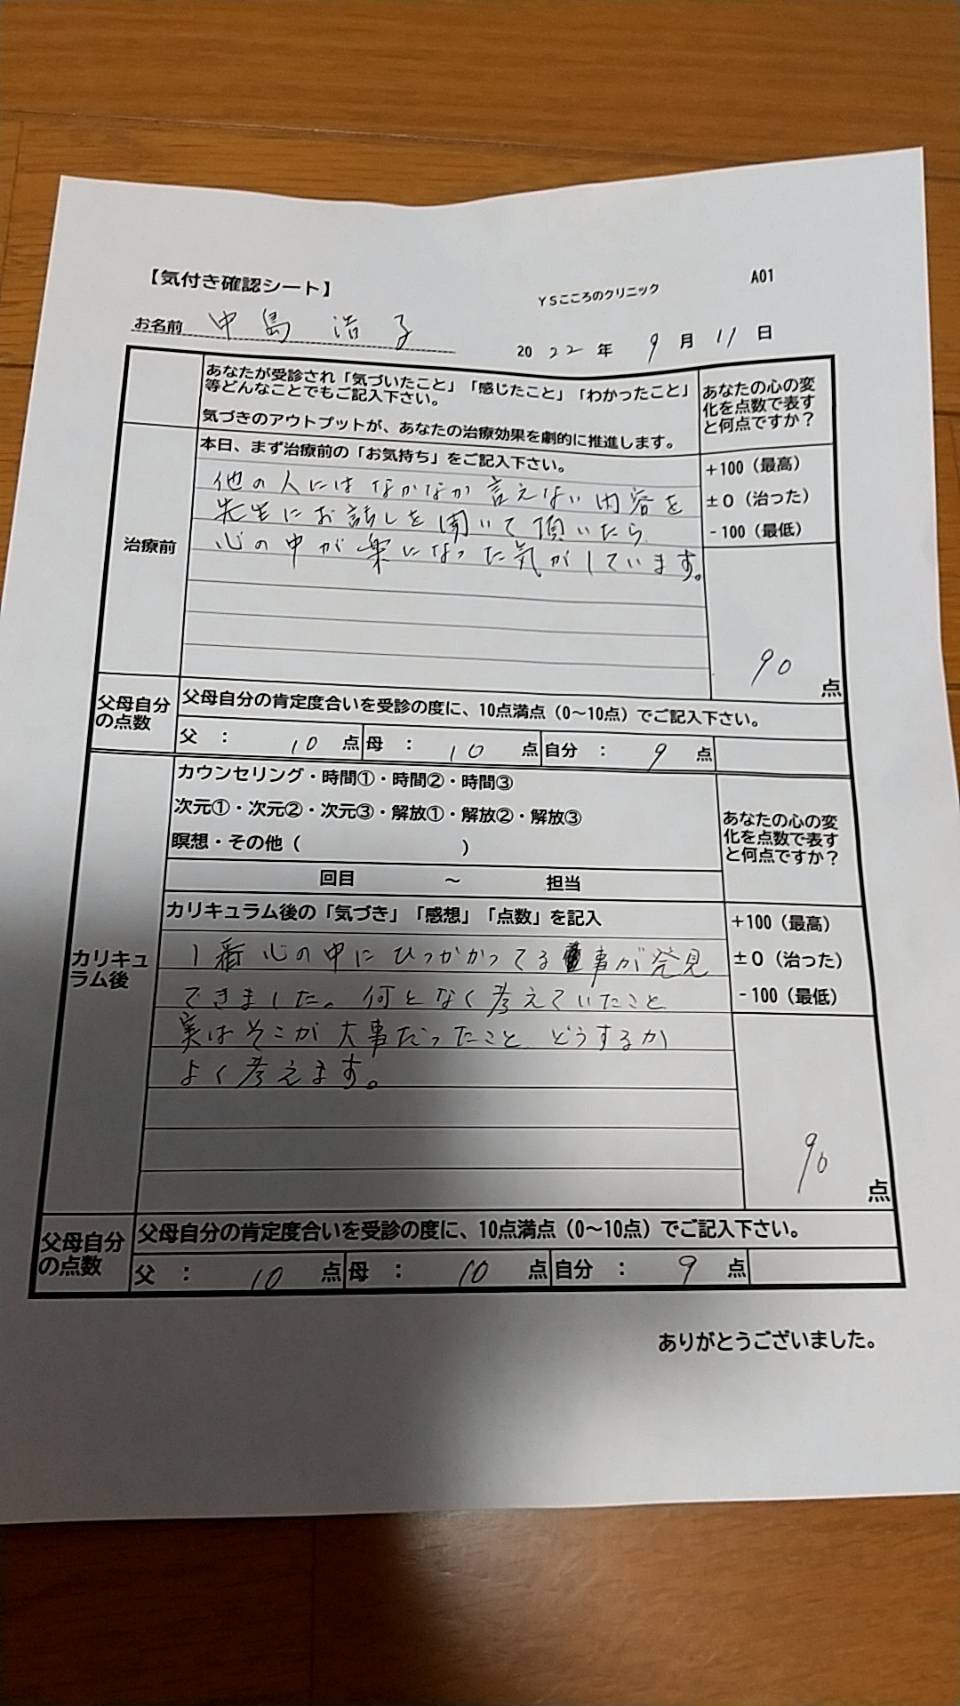 【気付き確認シート】
YSこころのクリニック
A01
お名前 中島 浩子
2022年 9月 11日
あなたが受診され「気づいたこと」「感じたこと」「わかったこと」
等どんなことでもご記入下さい。
気づきのアウトプットが、あなたの治療効果を劇的に推進します。
あなたの心の変
化を点数で表す
と何点ですか？
治療前
本日、まず治療前の「お気持ち」をご記入下さい。
他の人にはなかなか言えない内容を
先生にお話しを聞いて頂いたら
心の中が楽になった気がしています。
+100（最高）
±0（治った）
-100（最低）
90 点
父母自分
の点数
父母自分の肯定度合いを受診の度に、10点満点（0～10点）でご記入下さい。
父 ： 10 点 母 ： 10 点 自分 ： 9 点
カリキュ
ラム後
カウンセリング・時間①・時間②・時間③
次元①・次元②・次元③・解放①・解放②・解放③
瞑想・その他（ ）
回目 ～ 担当
あなたの心の変
化を点数で表す
と何点ですか？
カリキュラム後の「気づき」「感想」「点数」を記入
1番心の中にひっかかってる事が発見
できました。何となく考えていたこと
実はそこが大事だったこと、どうするか
よく考えます。
+100（最高）
±0（治った）
-100（最低）
90 点
父母自分
の点数
父母自分の肯定度合いを受診の度に、10点満点（0～10点）でご記入下さい。
父 ： 10 点 母 ： 10 点 自分 ： 9 点
ありがとうございました。